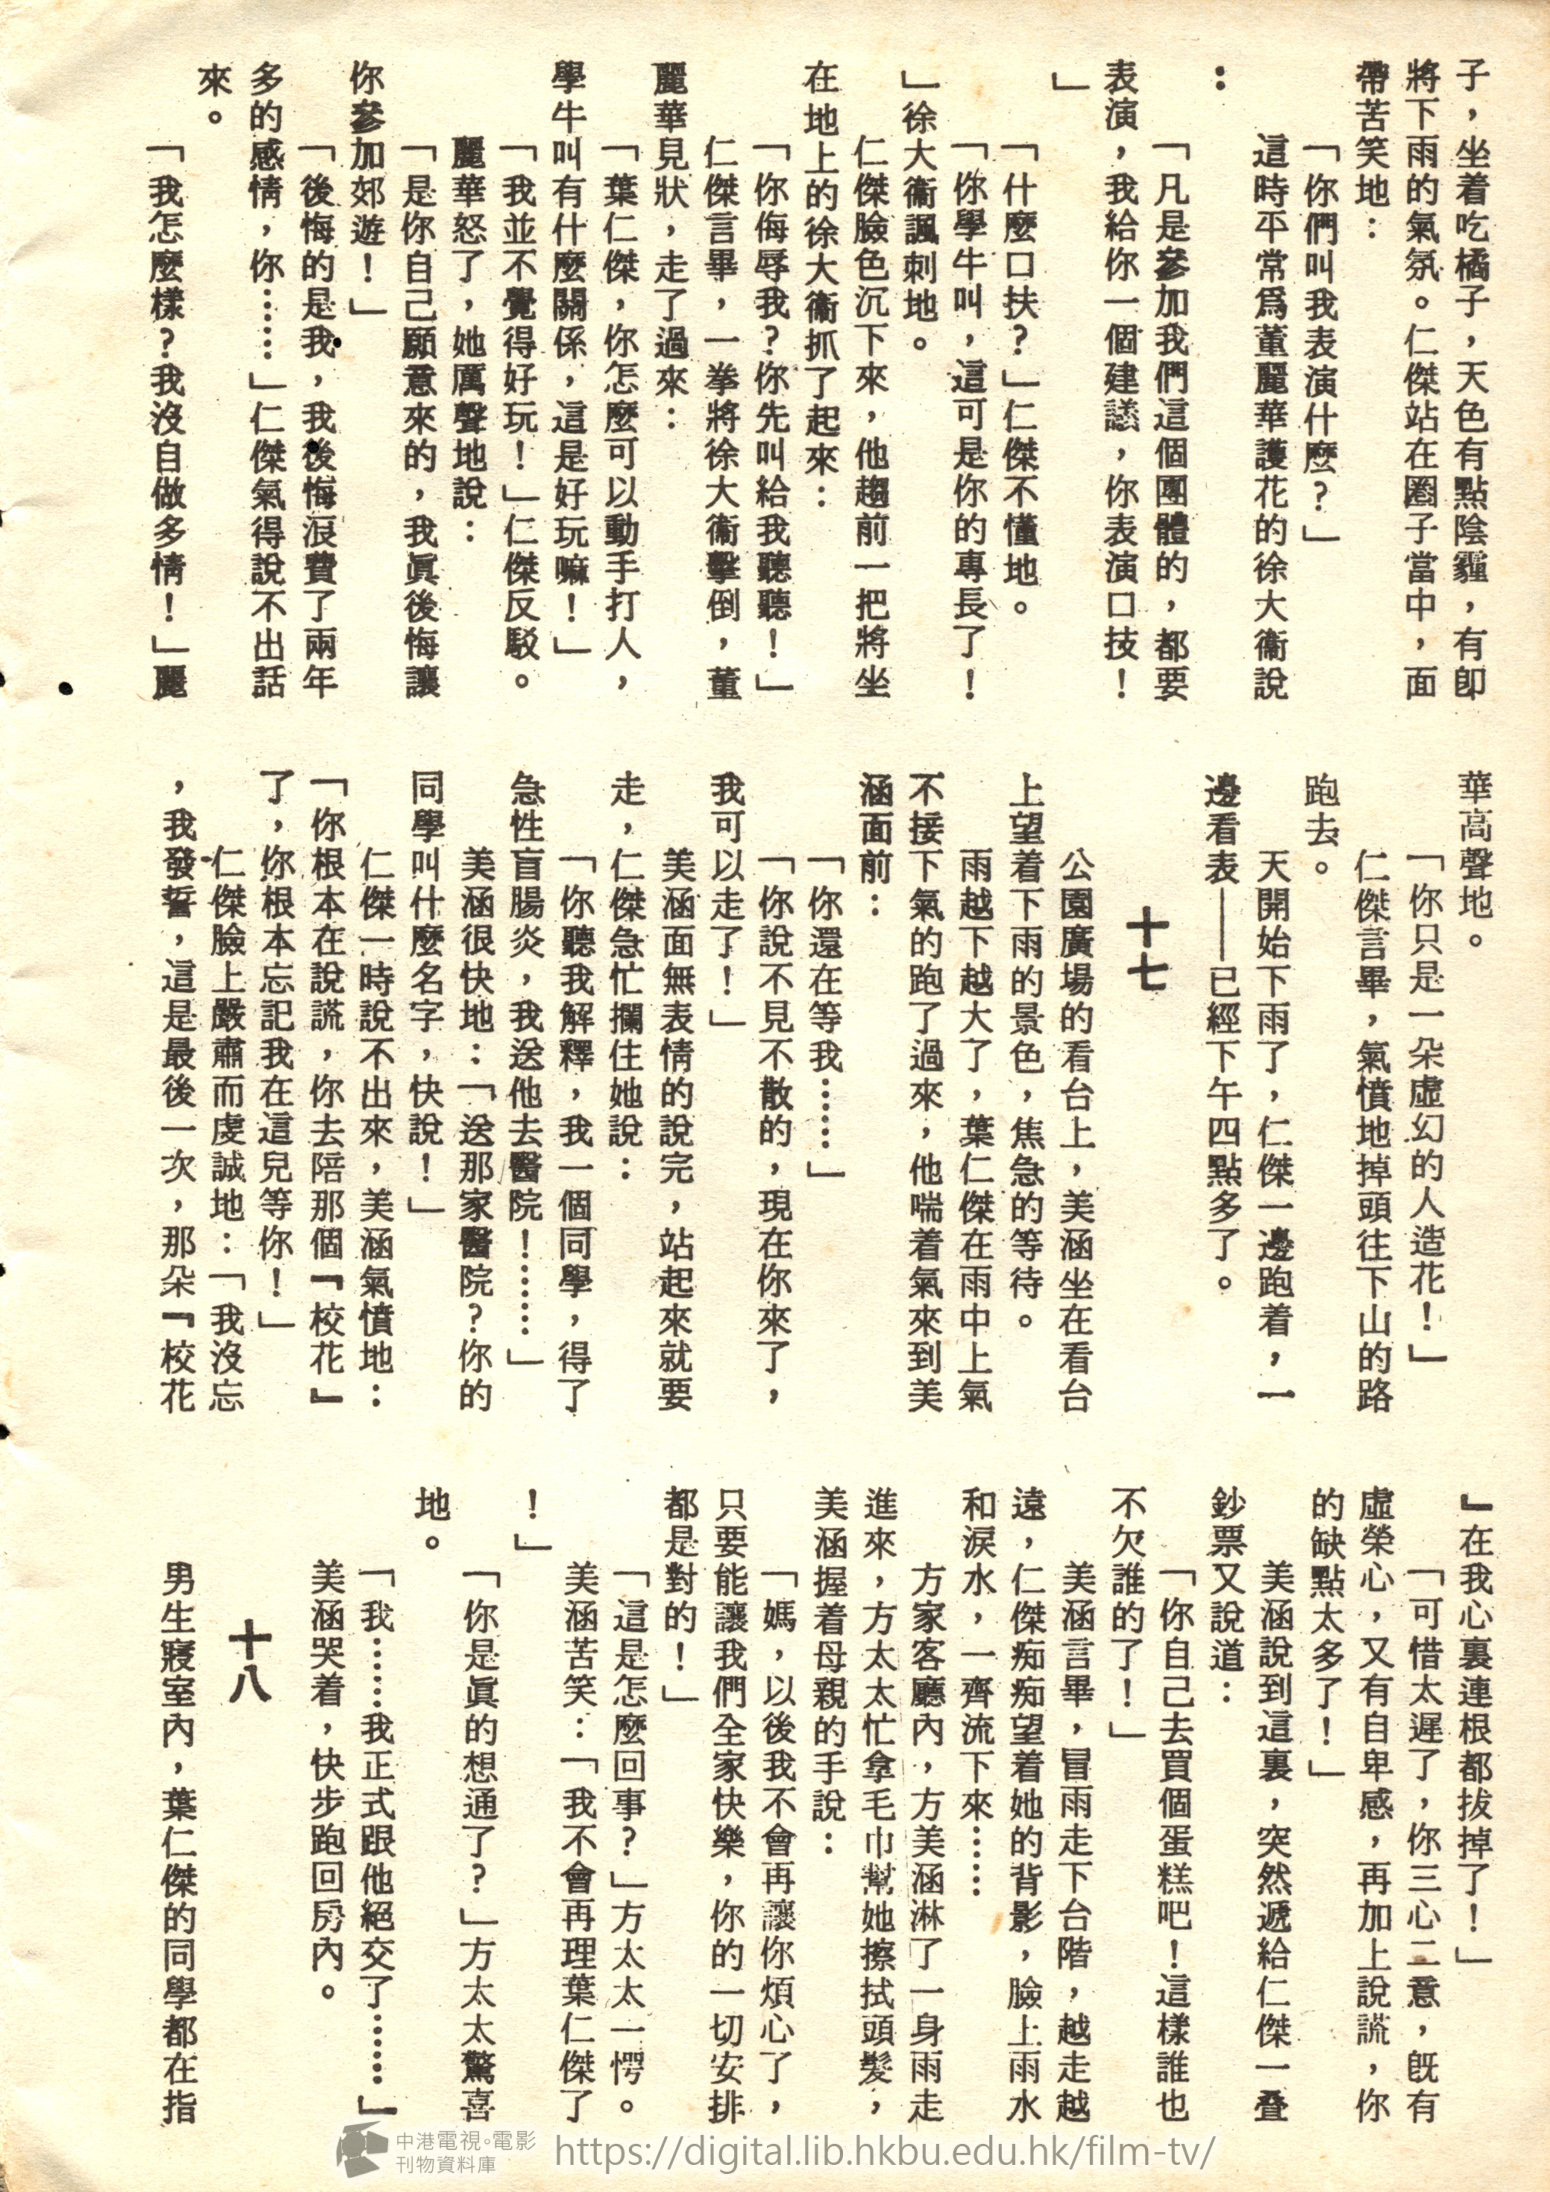 子，坐着吃橘子，天色有點陰霾，有卽
將下雨的氣氛。仁傑站在圈子當中，面
帶苦笑地：
「你們叫我表演什麼？」
這時平常爲董麗華護花的徐大衞說
：
「凡是參加我們這個團體的，都要
表演，我給你一個建議，你表演口技！
」
「什麼口扶？」仁傑不懂地。
「你學牛叫，這可是你的專長了！
」徐大衞諷刺地。
仁傑臉色沉下來，他趨前一把將坐
在地上的徐大衞抓了起來：
「你侮辱我？你先叫給我聽聽！」
仁傑言畢，一拳將徐大衞擊倒，董
麗華見狀，走了過來：
「葉仁傑，你怎麼可以動手打人，
學牛叫有什麼關係，這是好玩嘛！」
「我並不覺得好玩！」仁傑反駁。
麗華怒了，她厲聲地說：
「是你自己願意來的，我眞後悔讓
你參加郊遊！」
「後悔的是我，我後悔浪費了兩年
多的感情，你……」仁傑氣得說不出話
來。
「我怎麼樣？我沒自做多情！」麗
華高聲地。
「你只是一朵虛幻的人造花！」
仁傑言畢，氣憤地掉頭往下山的路
跑去。
天開始下雨了，仁傑一邊跑着，一
邊看表——已經下午四點多了。
十七
公園廣場的看台上，美涵坐在看台
上望着下雨的景色，焦急的等待。
雨越下越大了，葉仁傑在雨中上氣
不接下氣的跑了過來，他喘着氣來到美
涵面前：
「你還在等我……」
「你說不見不散的，現在你來了，
我可以走了！」
美涵面無表情的說完，站起來就要
走，仁傑急忙攔住她說：
「你聽我解釋，我一個同學，得了
急性盲腸炎，我送他去醫院！……」
美涵很快地：「送那家醫院？你的
同學叫什麼名字，快說！」
仁傑一時說不出來，美涵氣憤地：
「你根本在說謊，你去陪那個『校花』
了，你根本忘記我在這兒等你！」
仁傑臉上嚴肅而虔誠地：「我沒忘
，我發誓，這是最後一次，那朵『校花
』在我心裏連根都拔掉了！」
「可惜太遲了，你三心二意，旣有
虛榮心，又有自卑感，再加上說謊，你
的缺點太多了！」
美涵說到這裏，突然遞給仁傑一叠
鈔票又說道：
「你自己去買個蛋糕吧！這樣誰也
不欠誰的了！」
美涵言畢，冒雨走下台階，越走越
遠，仁傑痴痴望着她的背影，臉上雨水
和淚水，一齊流下來……
方家客廳內，方美涵淋了一身雨走
進來，方太太忙拿毛巾幫她擦拭頭髮，
美涵握着母親的手說：
「媽，以後我不會再讓你煩心了，
只要能讓我們全家快樂，你的一切安排
都是對的！」
「這是怎麼回事？」方太太一愕。
美涵苦笑：「我不會再理葉仁傑了
！」
「你是眞的想通了？」方太太驚喜
地。
「我……我正式跟他絕交了……」
美涵哭着，快步跑回房內。
十八
男生寢室內，葉仁傑的同學都在指
中港電視。電影
刊物資料庫
https://digital.lib.hkbu.edu.hk/film-tv/